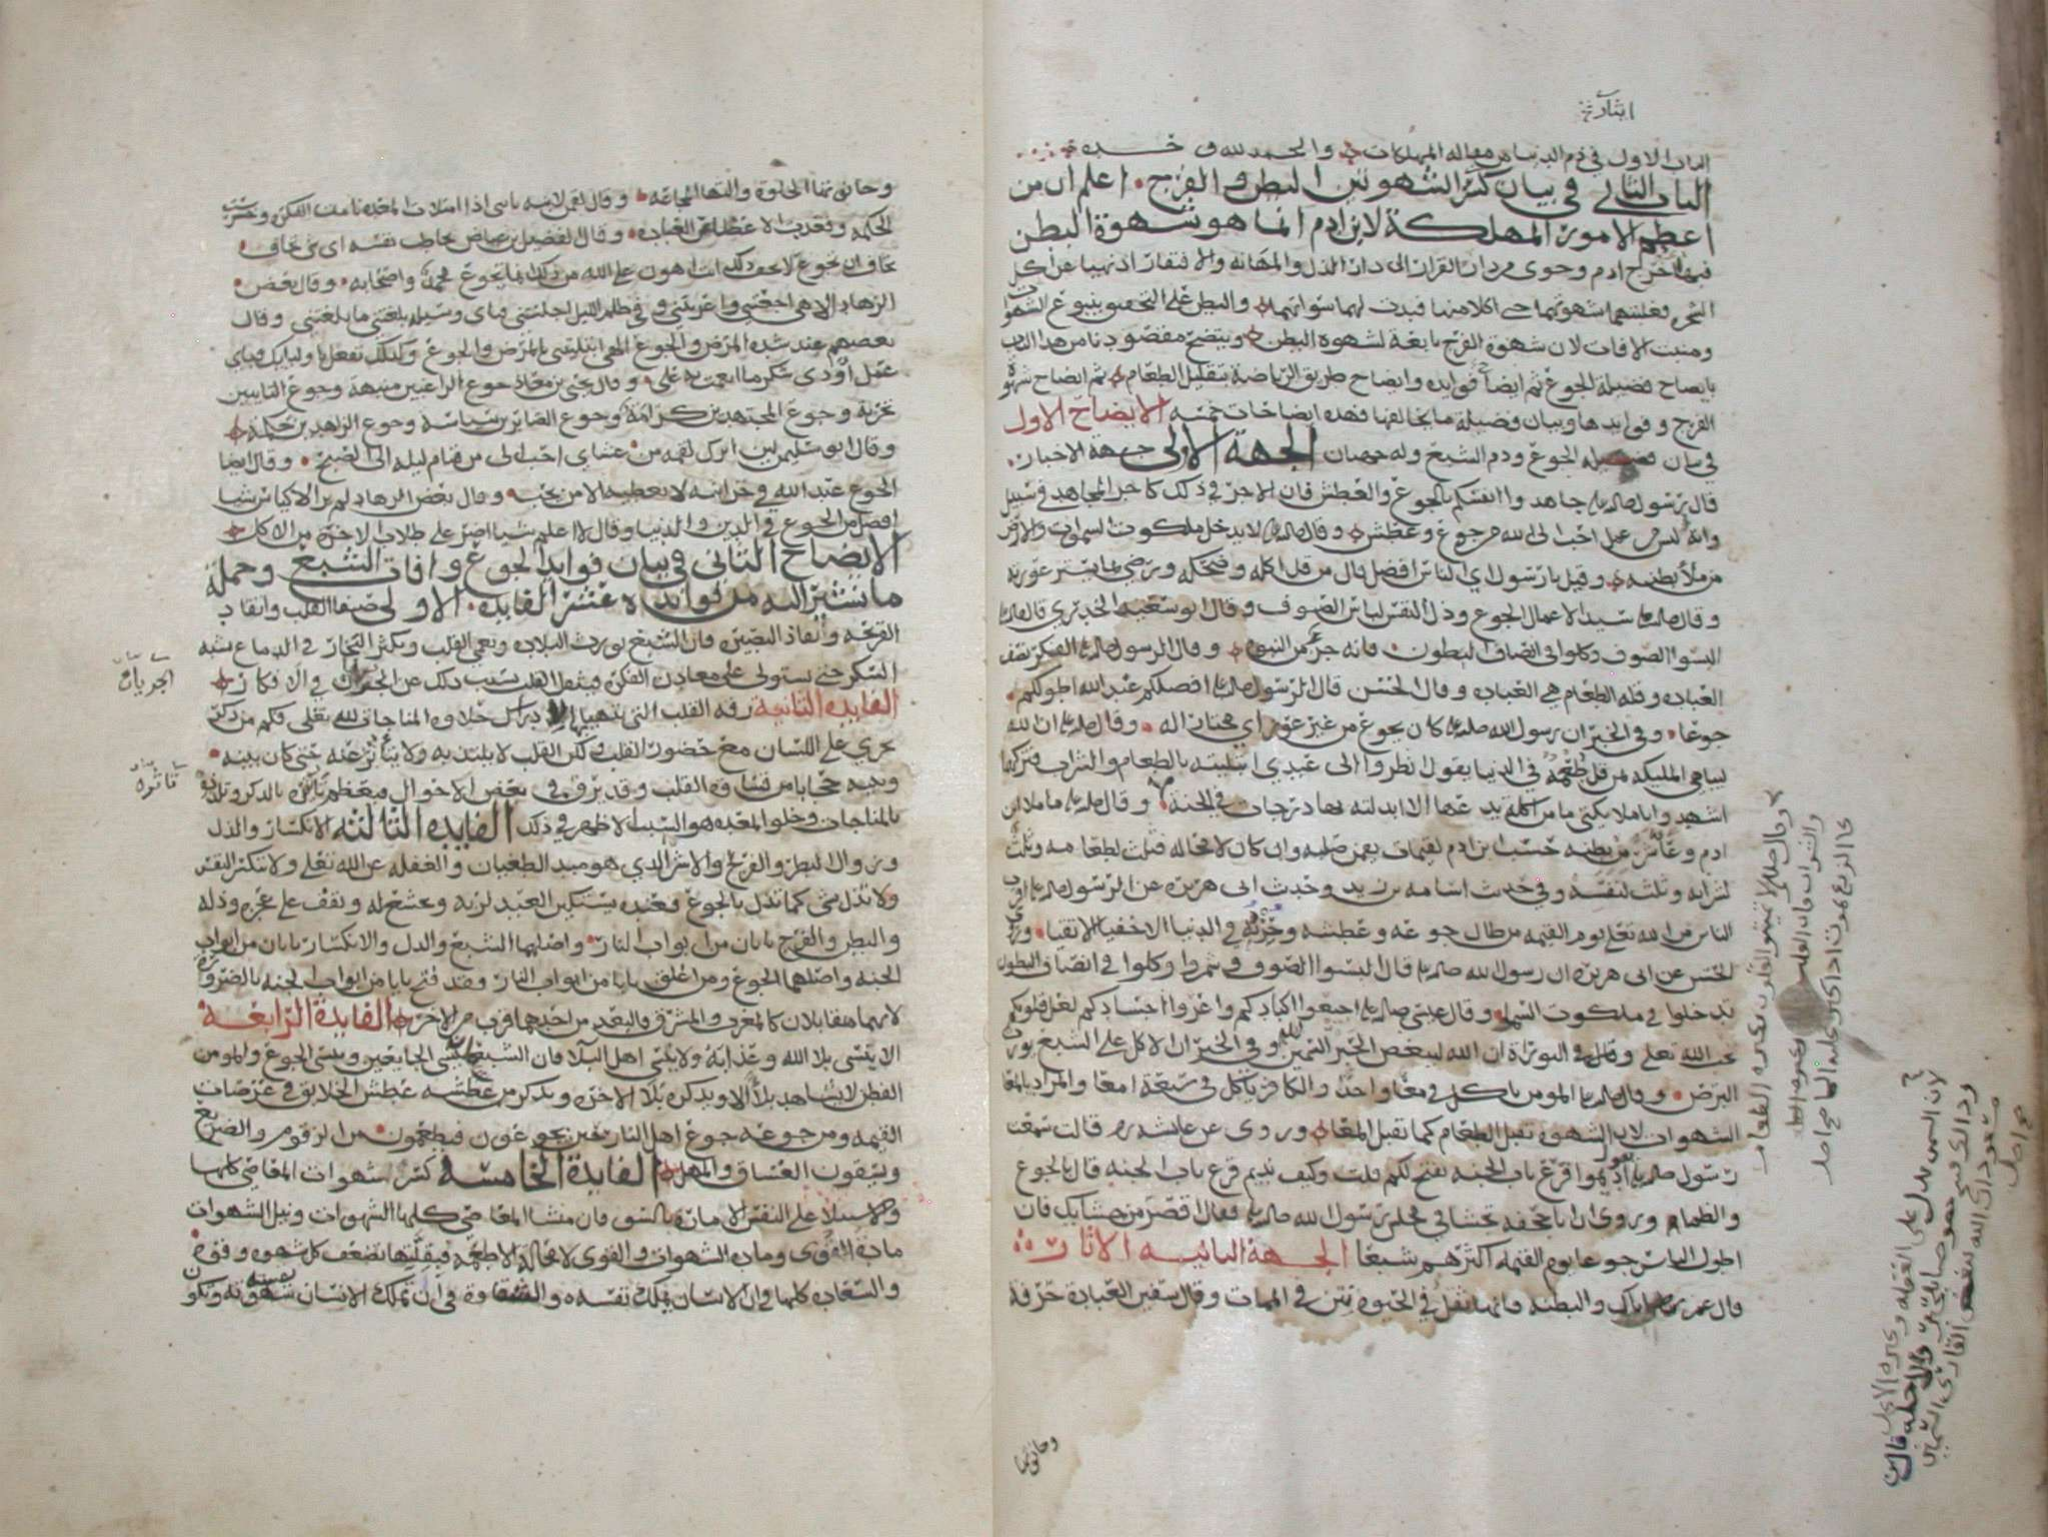 الباب الاول في ذم الدنيا من مقاله المهلكات والحمد لله وحده
الباب الثاني في بيان كسر الشهوتين البطن والفرج اعلم ان من
اعظم الامور المهلكة لابن ادم انما هو شهوة البطن
فبها اخرج ادم وحوى من دار القرار الى دار الذل والمهانه والافتقار اذ نهيا عن اكل
الشجره فغلبتهما شهوتهما حتى اكلا منها فبدت لهما سواتهما والبطن على التحقيق ينبوع الشهوات
ومنبت الافات لان شهوة الفرج تابعة لشهوه البطن ويتضح مقصودنا من هذا الباب
بايضاح فضيلة الجوع ثم ايضاح فوايده وايضاح طريق الرياضة بتقليل الطعام ثم ايضاح شهوة
الفرج وفوايدها وبيان فضيلة ما يخالفها فهذه ايضاحات خمسه الايضاح الاول
في بيان فضيله الجوع وذم الشبع وله جهتان الجهة الاولى جهة الاخبار
قال رسول الله صلى الله عليه جاهدوا انفسكم بالجوع والعطش فان الاجر في ذلك كاجر المجاهد في سبيل
الله وانه ليس من عمل احب الى الله من جوع وعطش وقال صلى الله عليه لا يدخل ملكوت السموات والارض
من ملأ بطنه وقيل يا رسول الله اي الناس افضل قال من قل اكله وضحكه ورضي بما يستر عورته
وقال صلى الله عليه سيد الاعمال الجوع وذل النفس لباس الصوف وقال ابو سعيد الخدري قال صلى الله عليه
البسوا الصوف وكلوا في انصاف البطون فانه جزء من النبوه وقال الرسول صلى الله عليه الفكر نصف
العباده وقلة الطعام هي العباده وقال الحسن قال الرسول صلى الله عليه افضلكم عند الله اطولكم
جوعا وفي الخبر ان رسول الله صلى الله عليه كان يجوع من غير عوز اي مختار له وقال صلى الله عليه ان الله
ليباهي المليكه بمن قل طعمه في الدنيا يقول انظروا الى عبدي ابتليته بالطعام والشراب فتركهما
اشهدوا يا ملايكتي ما من اكلة يدعها الا ابدلته بها درجات في الجنة وقال صلى الله عليه ما ملا ابن
ادم وعاء شر من بطنه حسب ابن ادم لقيمات يقمن صلبه وان كان لا محاله فثلث لطعامه وثلث
لشرابه وثلث لنفسه وفي حديث اسامه بن زيد وحديث ابي هريره عن الرسول صلى الله عليه اقرب
الناس من الله تعلى يوم القيمه من طال جوعه وعطشه وحزنه في الدنيا الاخفيا الاتقيا وروى
الحسن عن ابي هريره ان رسول الله صلى الله عليه قال البسوا الصوف وشمروا وكلوا في انصاف البطون
تدخلوا في ملكوت السماء وقال عيسى صلى الله عليه اجيعوا اكبادكم واعروا اجسادكم لعل قلوبكم
البرص وقال صلى الله عليه المومن ياكل في معا واحد والكافر ياكل في سبعة امعا والمراد بالمعا
الشهوات لان الشهوه تقبل الطعام كما تقبل المعا وروي عن عايشه قالت سمعت
رسول الله صلى الله عليه يقول اديموا قرع باب الجنة يفتح لكم قلت وكيف نديم قرع باب الجنه قال بالجوع
والظما وروي ان ابا جحيفه تجشا في مجلس رسول الله صلى الله عليه فقال اقصر من جشايك فان
اطول الناس جوعا يوم القيمه اكثرهم شبعا الجهة الثانيه الاثار
قال عمر اياكم والبطنه فانها ثقل في الحيوة نتن في الممات وقال شقيق العبادة حرفة
وحانوتها
وحانوتها الخلوة والتها المجاعه وقال لقمن لابنه يا بني اذا امتلات المعده نامت الفكره وخرست
الحكمه وقعدت الاعضا عن العباده وقال الفضيل بن عياض يخاطب نفسه اي شي تخاف
تخاف ان تجوع لا تخف ذلك انت اهون على الله من ذلك انما يجوع محمد واصحابه وقال بعض
الزهاد الاهي اجعتني واعريتني وفي ظلم الليل اجلستني فباي وسيله بلغتني ما بلغتني وقال
بعضهم عند شده المرض والجوع الهي ابتليتني بالمرض والجوع وكذلك تفعل باوليايك فباي
عمل اؤدي شكر ما انعمت به علي وقال يحيى بن معاذ جوع الراغبين منبهة وجوع التايبين
تجربة وجوع المجتهدين كرامة وجوع الصابرين سياسة وجوع الزاهدين حكمة
وقال ابو سليمن لين اترك لقمه من عشاي احب الي من قيام ليله الى الصبح وقال ايضا
الجوع عند الله في خزاينه لا يعطيه الا من يحبه وقال بعض الزهاد لم ير الاكياس شيا
افضل من الجوع في الدين والدنيا وقال لا اعلم شيا اضر على طلاب الاخرة من الاكل
الايضاح الثاني في بيان فوايد الجوع وافات الشبع وجملة
ما نشير اليه من فوايده عشر الفايده الاولى صفا القلب وايقاد
القريحه وانفاذ البصيرة فان الشبع يورث البلاده ويعمي القلب ويكثر البخار في الدماغ شبه
السكر حتى يستولي على معادن الفكر فيثقل القلب بسبب ذلك عن الجولان في الافكار
الجريان
الفايده الثانية رقه القلب التي يتهيا بها لادراك حلاوه المناجاة لله تعلى فكم من ذكر
يجري على اللسان مع حضور القلب لكن القلب لا يلتذ به ولا يتاثر عنه حتى كان بينه
وبينه حجابا من قساوه القلب وقد يرق في بعض الاحوال فيعظم تاثره بالذكر وتلذذه
تاثره
بالمناجات وخلو المعده هو السبب الاظهر في ذلك الفايده الثالثة الانكسار والذل
وزوال البطر والفرح والاشر الذي هو مبدا الطغيان والغفله عن الله تعلى ولا تنكسر النفس
ولا تذل بشي كما تذل بالجوع فعنده يستكين العبد لربه ويخشع له ويقف على عجزه وذله
والبطن والفرج بابان من ابواب النار واصلهما الشبع والذل والانكسار بابان من ابواب
الجنه واصلهما الجوع ومن اغلق بابا من ابواب النار فقد فتح بابا من ابواب الجنه بالضرورة
لانهما متقابلان كالمغرب والمشرق والبعد من احدهما قرب من الاخر الفايدة الرابعة
الا ينسى بلا الله وعذابه ولا ينسى اهل البلا فان الشبعان ينسى الجايعين وينسى الجوع والمومن
الفطن لا يشاهد بلاء الا ويذكره بلا الاخرة ويذكر من عطشه عطش الخلايق في عرصات
القيمه ومن جوعه جوع اهل النار حين يجوعون فيطعمون من الزقوم والضريع
ويسقون الغساق والمهل الفايدة الخامسة كسر شهوات المعاصي كلها
والاستيلاء على النفس الامارة بالسو فان منشا المعاصي كلها الشهوات ونيل الشهوات
مادة القوى وماده الشهوات والقوى لا محالة الاطعمه فبقلتها تضعف كل شهوه وقوة
والسعادة كلها في ان الانسان يملك نفسه والشقاوة في ان تملك الانسان نفسه